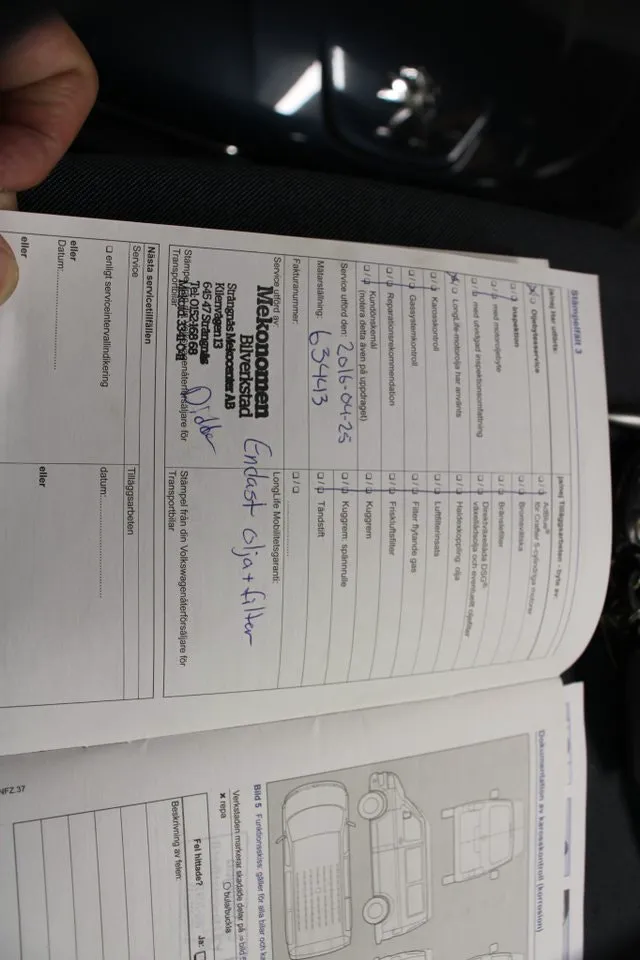 Stämpelfält 3
ja/nej Har utförts:
Oljebytesservice
Inspektion
med motoroljebyte
med utvidgad inspektionsomfattning
LongLife-motorolja har använts
Karosskontroll
Gassystemkontroll
Reparationsrekommendation
Kundönskemål
(notera detta även på uppdraget)
Service utförd den: 2016-04-25
Mätarställning: 63443
Fakturanummer:
ja/nej Tilläggsarbeten - byte av:
AdBlue®
för Crafter 5-cylindriga motorer
Bromsvätska
Bränslefilter
Direktväxellåda DSG®
växellådsolja och eventuellt oljefilter
Haldexkoppling: olja
Luftfilterinsats
Filter flytande gas
Friskluftsfilter
Kuggrem
Kuggrem: spännrulle
Tändstift
Service utförd av:
Mekonomen
Bilverkstad
Strängnäs Mekocenter AB
Kilenvägen 13
645 47 Strängnäs
Tel: 0152-168 68
Stämpel
Transportbilar
LongLife Mobilitetsgaranti:
Endast olja + filter
Stämpel från din Volkswagenåterförsäljare för
Transportbilar
Nästa servicetillfällen
Service
enligt serviceintervallindikering
eller
Datum:
eller
Tilläggsarbeten
datum:
eller
Dokumentation av karosskontroll (korrosion)
Bild 5 Funktionsskiss: gäller för alla bilar och
Verkstaden markerar skadade delar på
x repa
O bula/buckla
Fel hittade?
Ja:
Beskrivning av felen:
NFZ.37